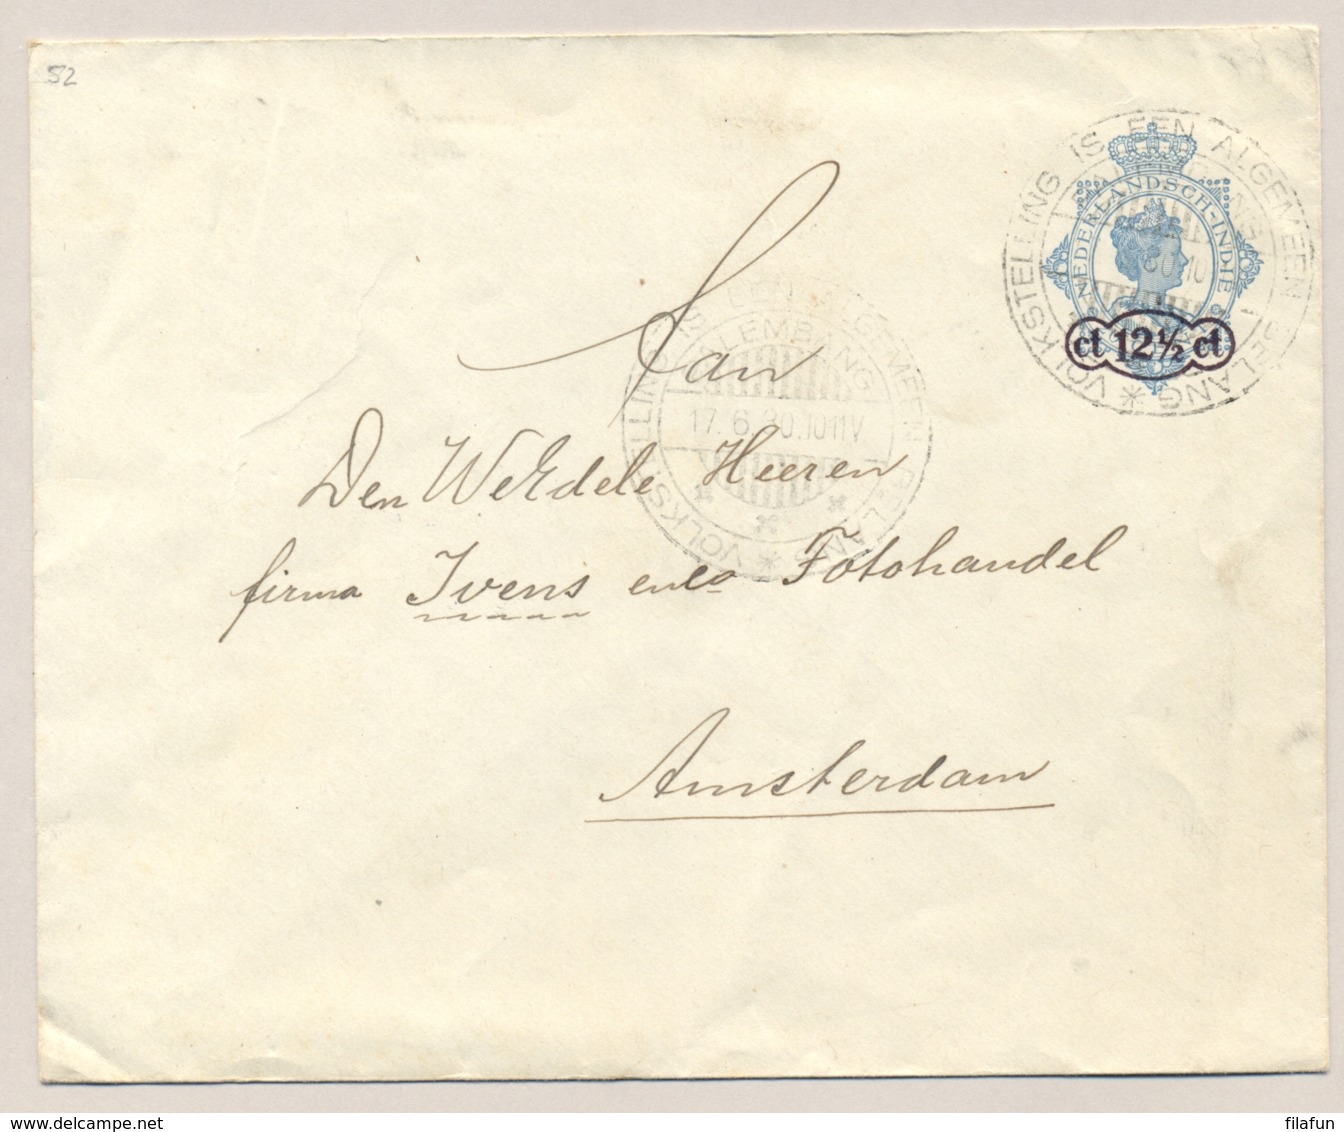 52
VOLKSTELLING IS EEN ALGEMEEN BELANG
NEDERLANDSCH-INDIE
ct 12½ ct
Aan
VOLKSTELLING IS EEN ALGEMEEN BELANG
PALEMBANG
17.6.30.1011V
Den WelEdele Heeren
firma Ivens en co Fotohandel
Amsterdam
filafun